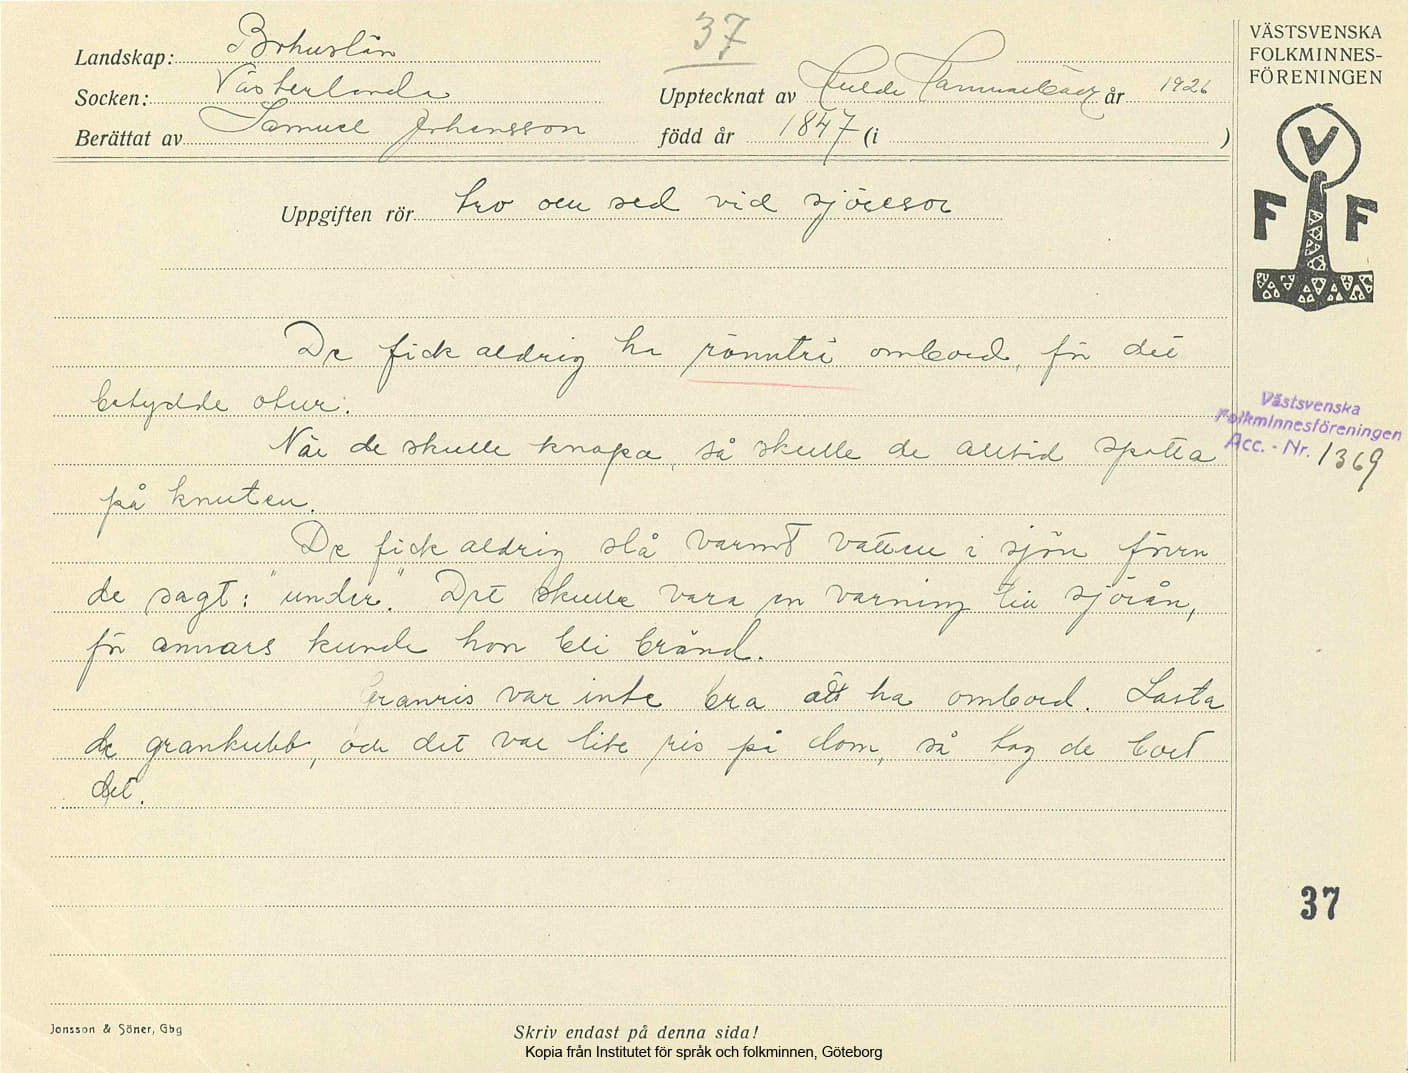 37
Landskap: Bohuslän
Socken: Västerlanda
Upptecknat av Hulda Hammarbäck år 1926
Berättat av Samuel Johansson
född år 1847 (i )
Uppgiften rör tro och sed vid sjöresor
De fick aldrig ha rönnträ ombord, för det
betydde otur.
När de skulle knopa, så skulle de alltid spotta
på knuten.
De fick aldrig slå varmt vatten i sjön förrn
de sagt: "under". Det skulle vara en varning till sjörån,
för annars kunde hon bli bränd.
Granris var inte bra att ha ombord. Lasta
de grankubb, och det var lite ris på dom, så tog de bort
det.
Jonsson & Söner, Gbg
Skriv endast på denna sida!
Kopia från Institutet för språk och folkminnen, Göteborg
VÄSTSVENSKA
FOLKMINNES-
FÖRENINGEN
V
F F
Västsvenska
Folkminnesföreningen
Acc. - Nr. 1369
37